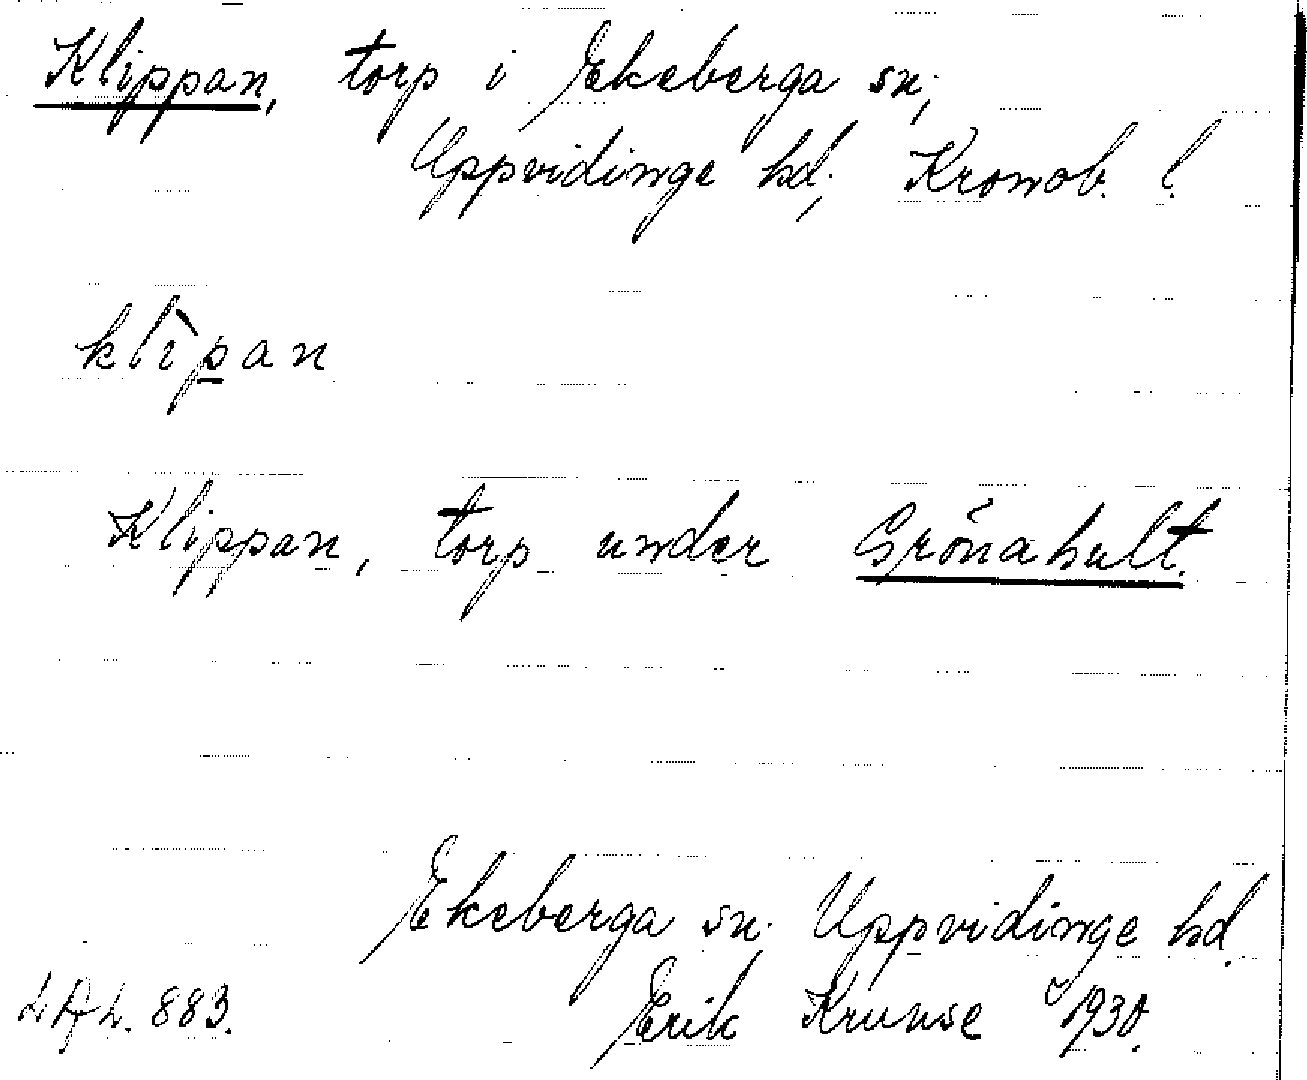 Klippan, torp i Ekeberga sn,
Uppvidinge hd, Kronob. l.
klìpan
Klippan, torp under Grönahult.
Ekeberga sn. Uppvidinge hd.
883. Erik Krunse 1930.